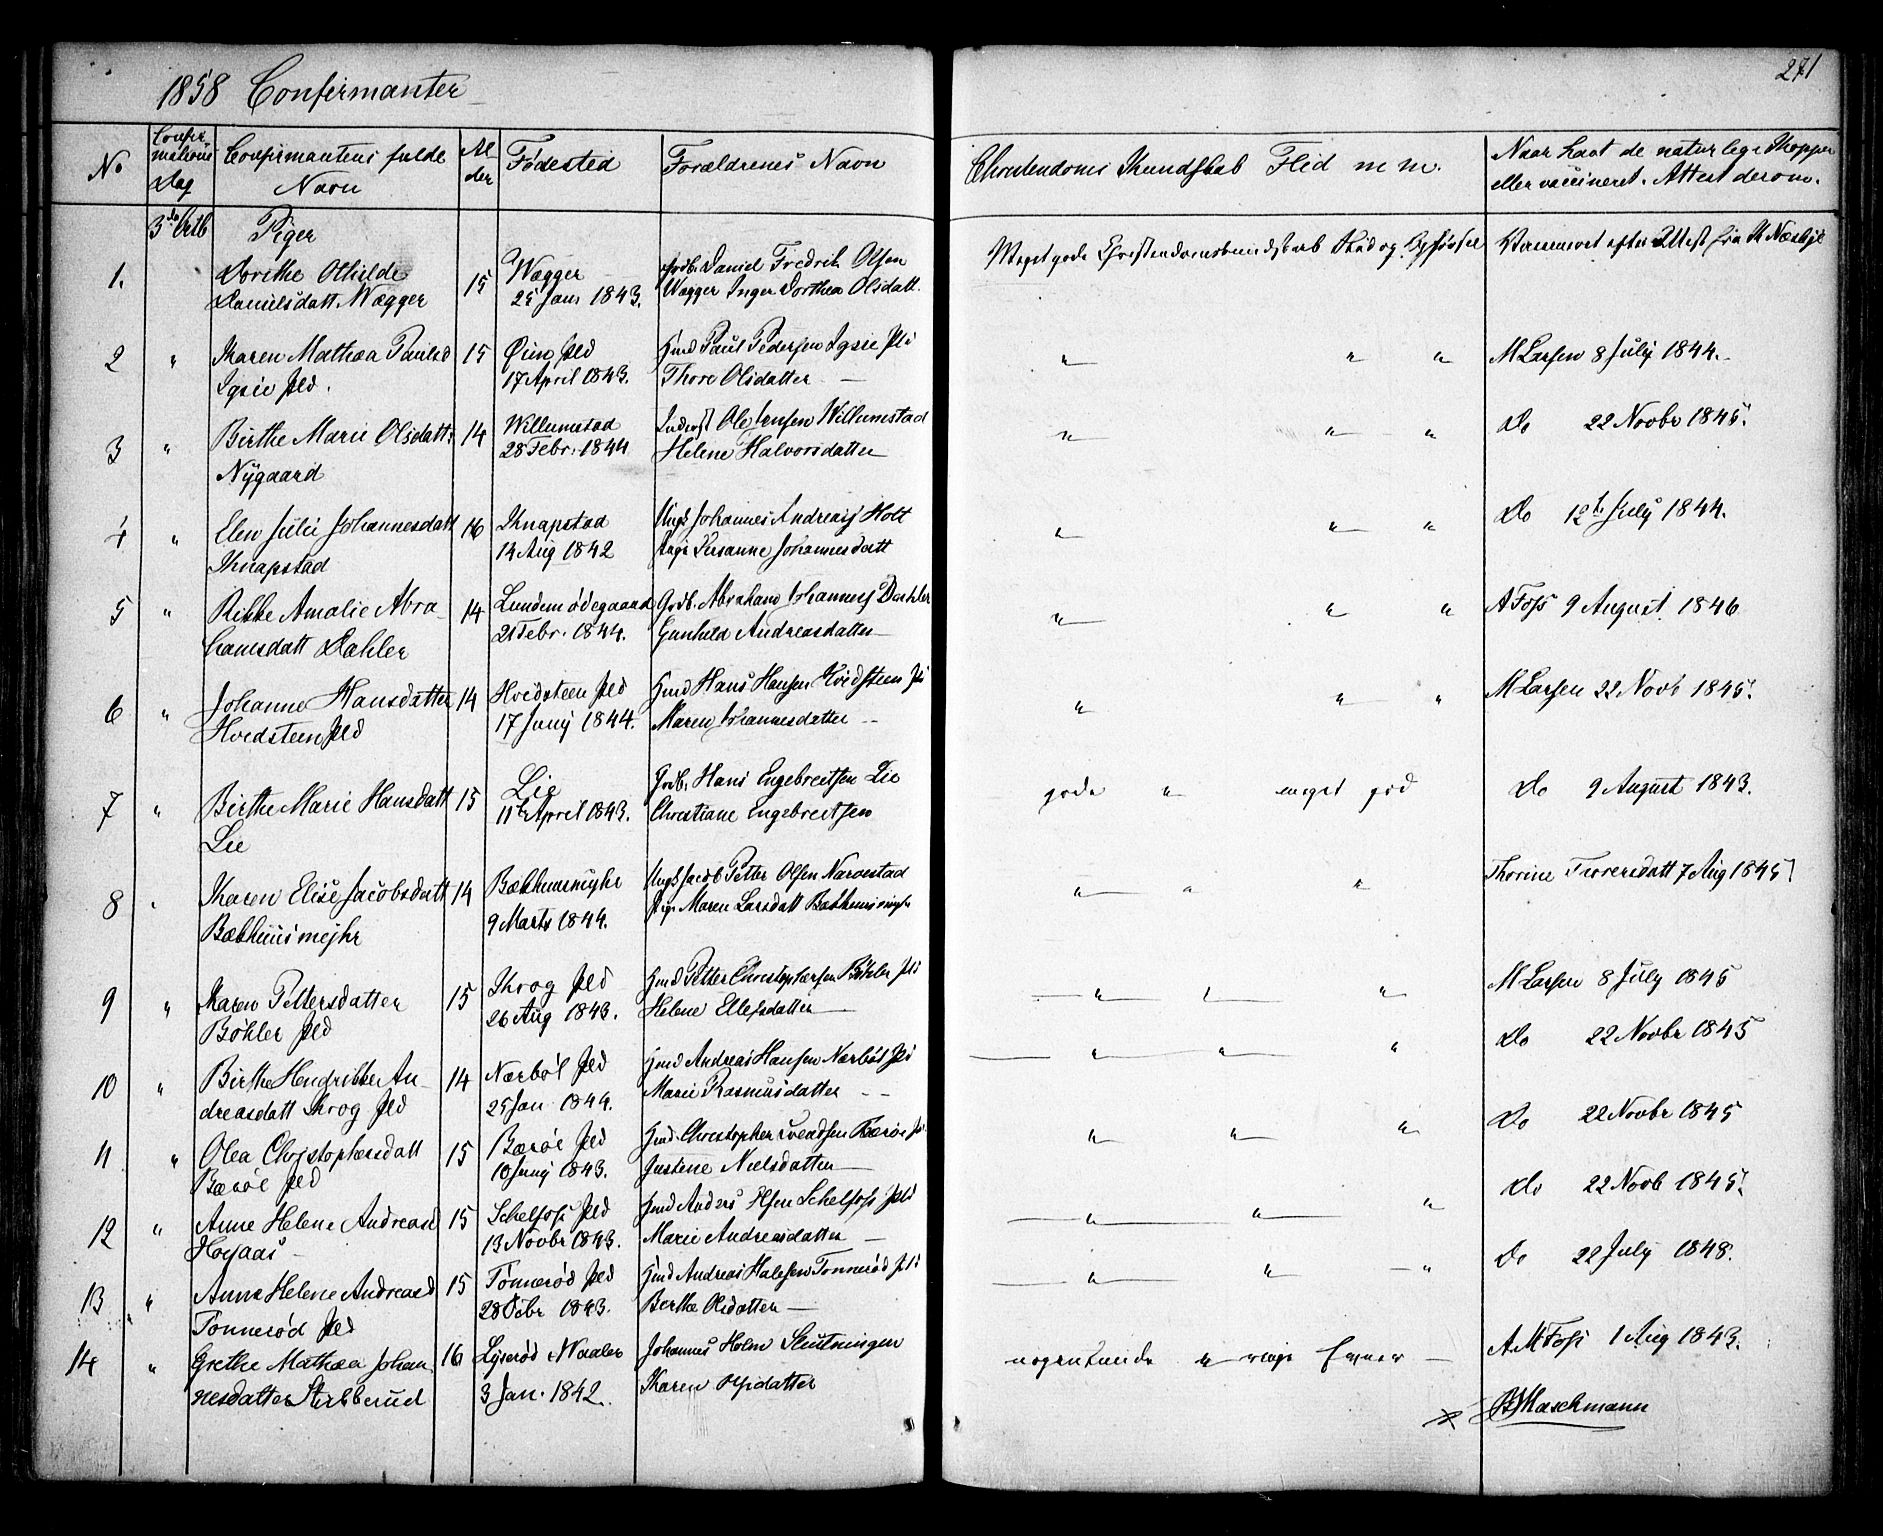 1858 Confirmanter
271
No
Confir
mations
Dag
Confirmantens fulde
Navn
Al-
der
Fødested
Forældrenes Navn
Christendoms Kundskab Flid m m.
Naar havt de naturlige Kopper
eller vaccineret. Attest derom.
3die Octb
Piger
1.
Dorithe Othilde
Danielsdatt. Wægger
15
Wægger
25 Jan 1843.
Grdb. Daniel Fredrik Olsen
Wægger Inger Dorthea Olsdatt.
Meget gode Christendomskundskab Flid og Opførsel
Vaccineret efter Attest fra Næsbye
2 "
Karen Mathea Paulsd
Igsie Pld.
15
Øien Pld
17 April 1843.
Hmd Paul Pedersen Igsie Pld
Thore Olsdatter —
" " "
M Larsen 8 July 1844.
3 "
Birthe Marie Olsdatt.
Nygaard
14
Willumstad
28 Febr. 1844
Inderst Ole Jensen Willumstad
Helene Halvorsdatter
" " "
Do 22 Novbr 1845.
4 "
Elen Julie Johannesdatt
Knapstad
16
Knapstad
14 Aug 1842
Ungk Johannes Andreass Holt
Pige Susanne Johannesdatt
" " "
Do 12te July 1844.
5 "
Rikke Amalie Abra
hamsdatt Dahler
14
Lundem ødegaard
21 Febr. 1844.
Grdb. Abraham Johanness Dahler
Gunhild Andreasdatter —
" " "
A Foss 9 August 1846
6 "
Johanne Hansdatter
Hvidsteen Pld
14
Hvidsteen Pld
17 Juny 1844.
Hmd Hans Hansen Hvidsteen Pld
Maren Johannesdatter --
" " "
M Larsen 22 Novb 1845.
7 "
Birthe Marie Hansdatt
Lie
15
Lie
11te April 1843.
Grdb. Hans Engebretsen Lie
Christiane Engebretsen
gode " meget god
Do 9 August 1843.
8 "
Karen Elise Jacobsdatt
Bækhuusmejhr
14
Bækhuusmyhr
9 Marts 1844.
Ungk Jacob Petter Olsen Narvestad
Pige Maren Larsdatt Bækhuusmyhr
" " "
Thorine Iversdatt 7 Aug 1845
9 "
Karen Pettersdatter
Bøhler Pld
15
Skrog Pld
26 Aug 1843.
Hmd Petter Christophersen Bøhler Pld
Helene Ellefsdatter —
" " "
M Larsen 8 July 1845
10 "
Birthe Hendrikke An-
dreasdatt Skrog Pld
14
Nærbøl Pld
25 Jan 1844.
Hmd Andreas Hansen Nærbøl Pld
Marie Rasmusdatter --
" " "
Do 22 Novbr 1845
11 "
Olea Christophersdatt
Bærøe Pld
15
Bærøe Pld
10 Juny 1843.
Hmd. Christopher Svendsen Bærøe Pl.
Justine Nielsdatter —
" " "
Do 22 Novbr 1845
12 "
Anne Helene Andreasd
Hojaas —
15
Schelfoss Pld
13 Novbr 1843.
Hmd Anders Olsen Schelfoss Pld
Marie Andreasdatter —
" " "
Do 22 Novb 1845.
13 "
Anne Helene Andreasd
Tonnerød Pld
15
Tonnerød Pld
28 Octbr 1843.
Hmd Andreas Halfsen Tonnerød Pld
Berthe Olsdatter —
" " "
Do 22 July 1848.
14 "
Grethe Mathea Johan
nesdatter Stubberud
16
Lyserød Waaler
3 Jan. 1842.
Johannes Holm Slutningen
Karen Olsdatter
nogenlunde "
A M Foss 1 Aug 1843.
Maschmann